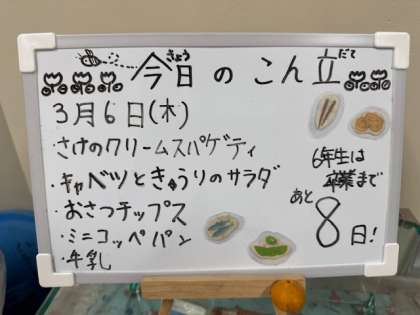 今日のこん立
きょう
だて
3月6日(木)
・さけのクリームスパゲティ
・キャベツときゅうりのサラダ
・おさつチップス
・ミニコッペパン
・牛乳
6年生は
卒業まで
あと
8日!